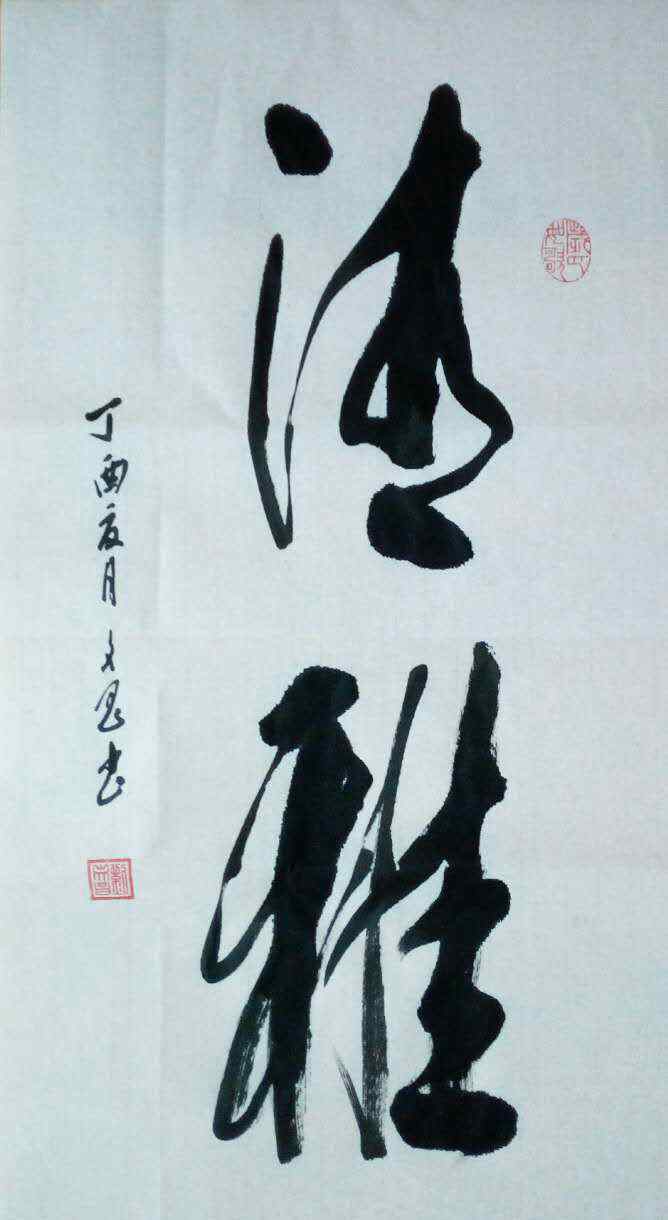 清雅
丁酉夏月 文书